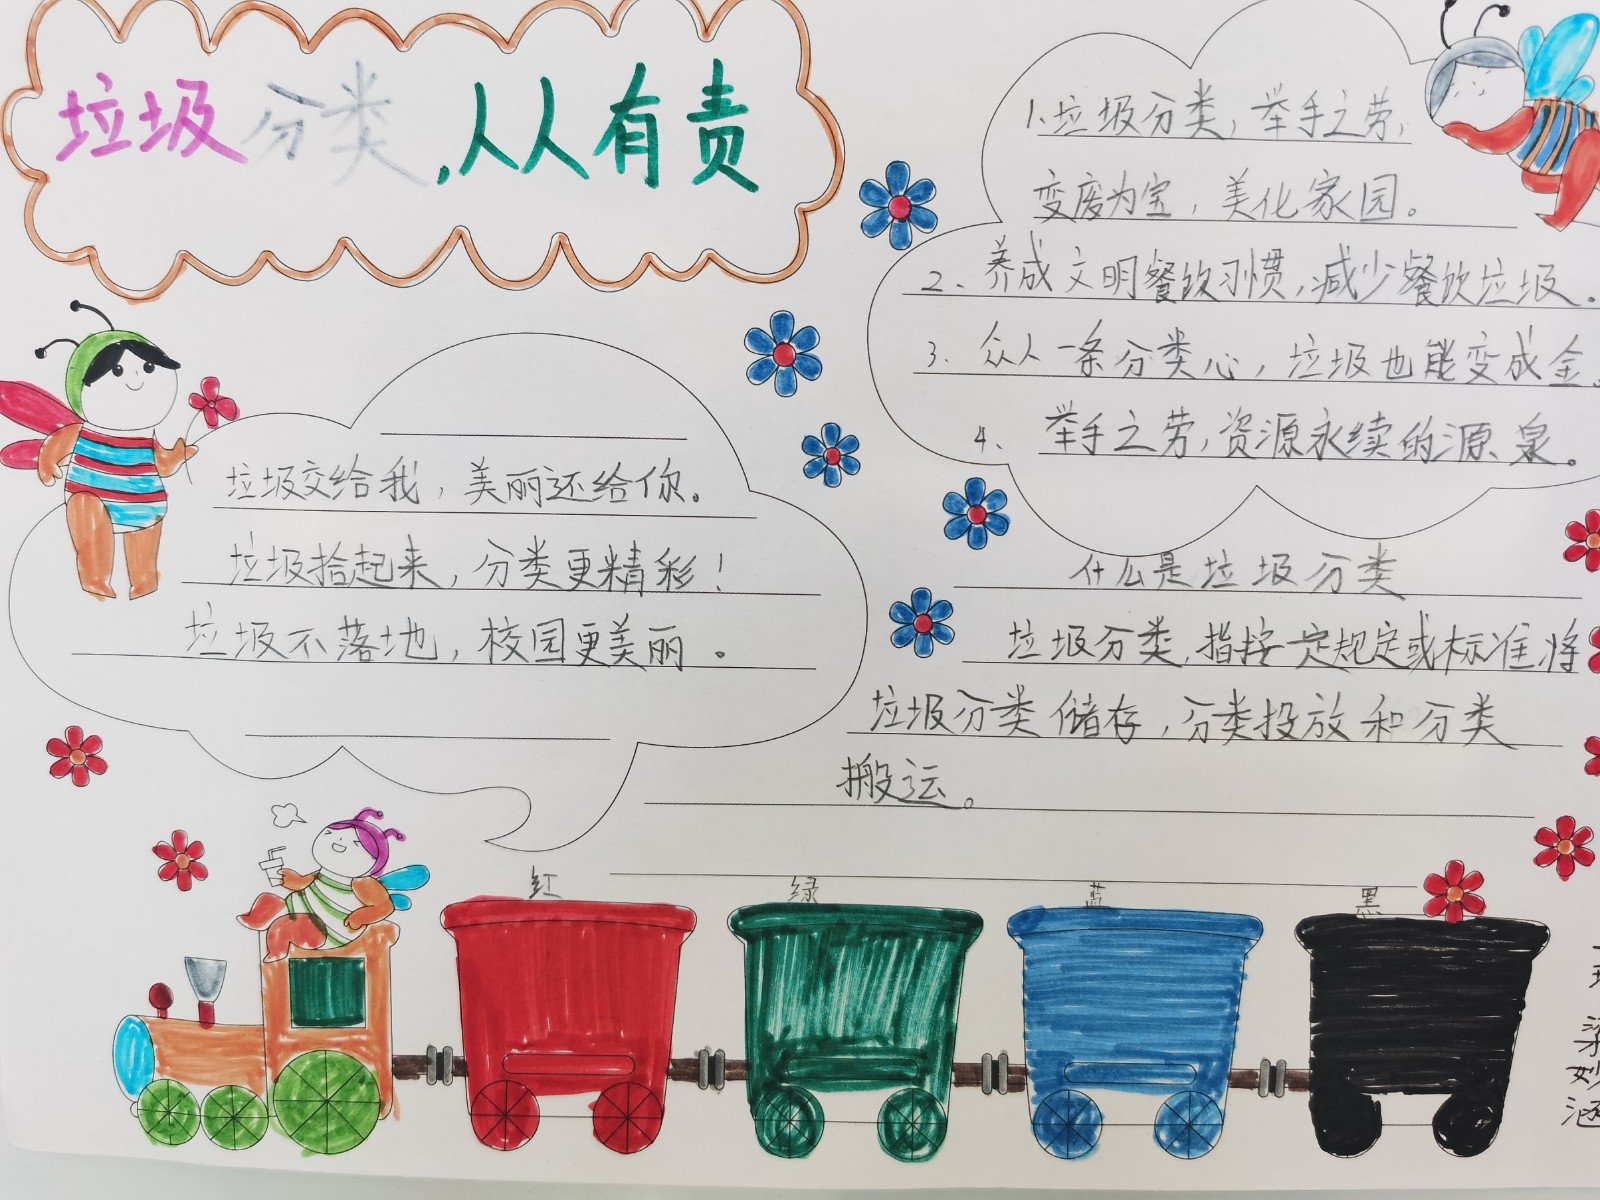 垃圾分类,从从有责
1.垃圾分类,举手之劳,
变废为宝,美化家园。
2、养成文明餐饮习惯,减少餐饮垃圾。
3、众人一条分类心,垃圾也能变成金。
4、举手之劳,资源永续的源泉。
垃圾交给我,美丽还给你。
垃圾拾起来,分类更精彩!
垃圾不落地,校园更美丽。
什么是垃圾分类
垃圾分类,指按一定规定或标准将
垃圾分类储存,分类投放和分类
搬运。
红 绿 蓝 黑
梁妙涵